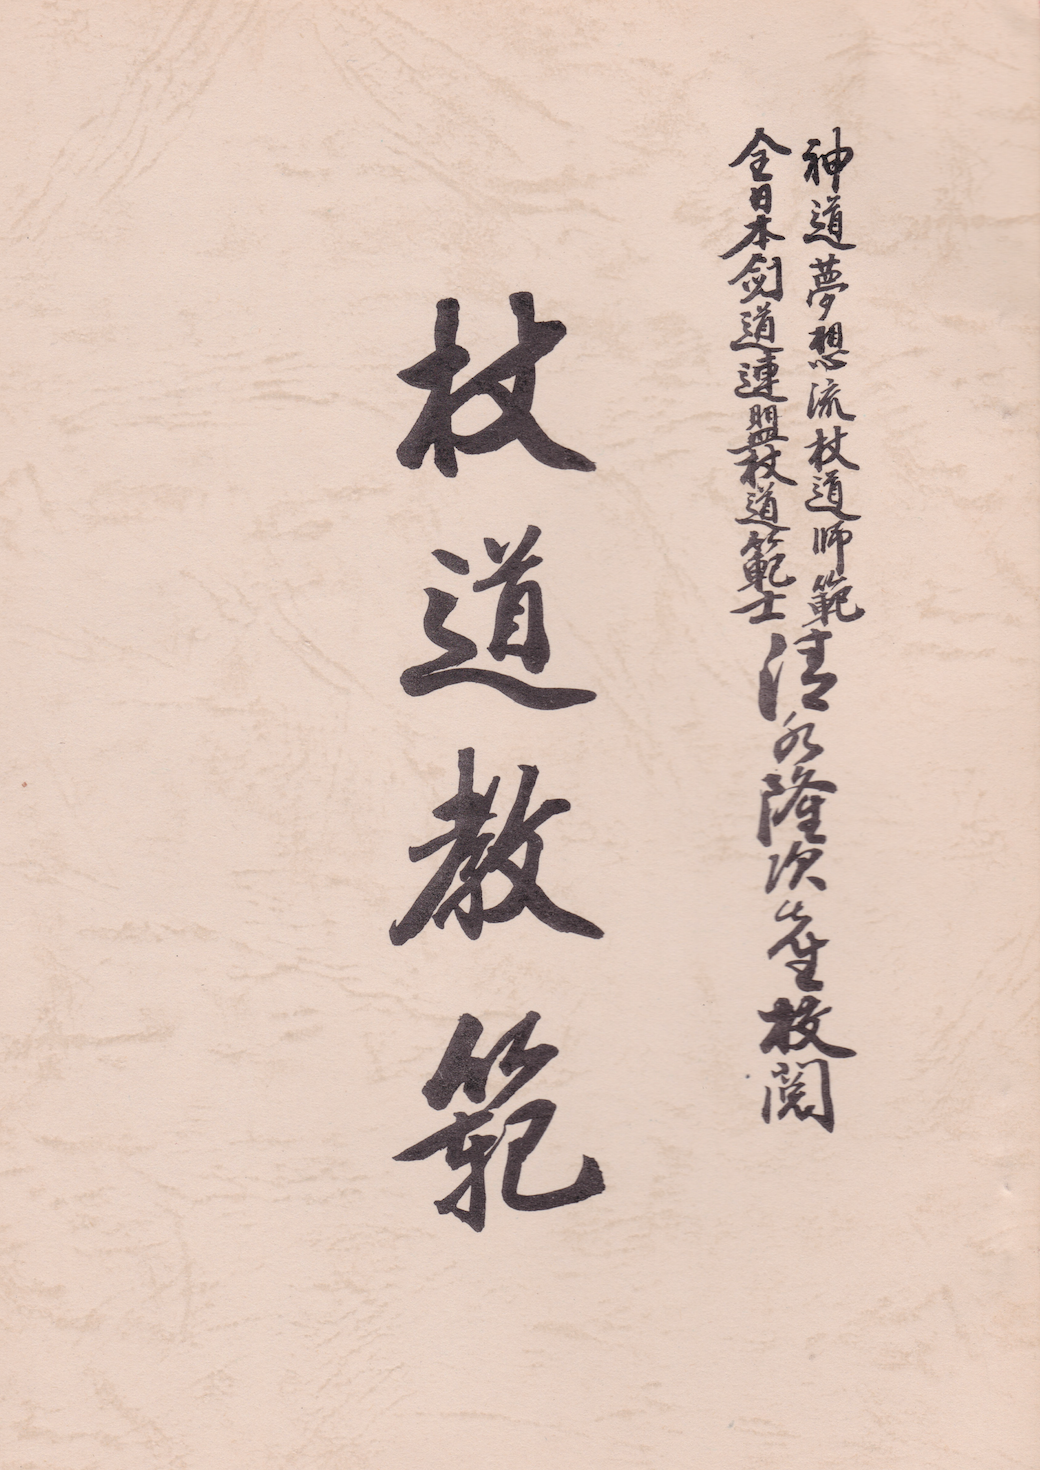 神道夢想流杖道師範
全日本剣道連盟杖道範士
清水隆次先生校閲
杖道教範